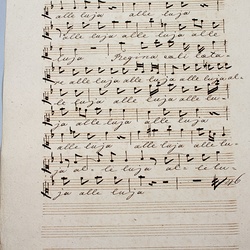 alle luja alle luja
alle luja alle luja alle
luja Regina cæli læta
alle luja alle luja alle luja al
le luja alle luja alle lu
ja alle luja alle luja
alle luja alle luja alle lu
ja al le luja al le lu
ja alle luja